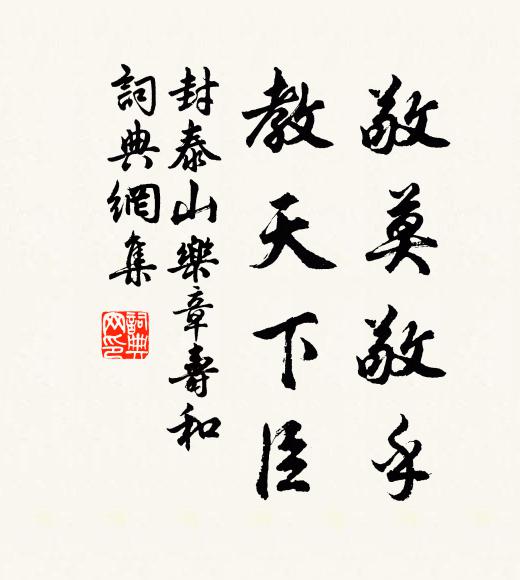 敬莫敬乎
教天下臣
封泰山樂章壽和
詞典網集
詞典
网印